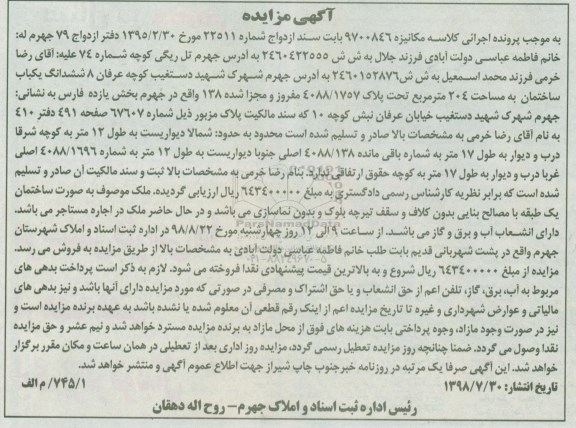 آگهی مزایده
به موجب پرونده اجرائی کلاسه مکانیزه ۹۷۰۰۸۴۶ بابت سند ازدواج شماره ۲۲۵۱۱ مورخ ۱۳۹۵/۲/۳۰ دفتر ازدواج ۷۹ جهرم له:
خانم فاطمه عباسی دولت آبادی فرزند جلال به ش ش ۲۴۶۰۴۲۲۵۵۵ به آدرس جهرم تل ریگی کوچه شماره ۷۴ علیه: آقای رضا
خرمی فرزند محمد اسمعیل به ش ش ۲۴۶۰۱۵۲۸۷۶ به ادرس جهرم شهرک شهید دستغیب کوچه عرفان ۸ ششدانگ یکباب
ساختمان به مساحت ۲۰۴ مترمربع تحت پلاک ۴۰۸۸/۱۷۵۷ مفروز و مجزا شده ۱۳۸ واقع در جهرم بخش یازده فارس به نشانی:
جهرم شهرک شهید دستغیب خیابان عرفان نبش کوچه ۱۰ که سند مالکیت پلاک مزبور ذیل شماره ۶۷۶۰۷ صفحه ۴۹۱ دفتر ۴۱۰
به نام آقای رضا خرمی به مشخصات بالا صادر و تسلیم شده است محدود به حدود: شمالا دیواریست به طول ۱۲ متر به کوچه شرقا
درب و دیوار به طول ۱۷ متر به شماره باقی مانده ۴۰۸۸/۱۳۸ اصلی جنوبا دیواریست به طول ۱۲ متر به شماره ۴۰۸۸/۱۶۹۶ اصلی
غربا درب و دیوار به طول ۱۷ متر به کوچه حقوق ارتفاقی ندارد بنام رضا خرمی به مشخصات بالا ثبت و سند مالکیت آن صادر و تسلیم
شده است که برابر نظریه کارشناس رسمی دادگستری به مبلغ ۶۴۳۴۰۰۰۰۰ ریال ارزیابی گردیده. ملک موصوف به صورت ساختمان
یک طبقه با مصالح بنایی بدون کلاف و سقف تیرچه بلوک و بدون نماسازی می باشد و در حال حاضر ملک در اجاره مستاجر می باشد.
دارای انشعاب آب و برق و گاز می باشد. از ساعت ۹ الی ۱۲ روز چهارشنبه مورخ ۹۸/۸/۲۲ در اداره ثبت اسناد و املاک شهرستان
جهرم واقع در پشت شهربانی قدیم بابت طلب خانم فاطمه عباسی دولت آبادی به مشخصات بالا از طریق مزایده به فروش می رسد.
مزایده از مبلغ ۶۴۳۴۰۰۰۰۰ ریال شروع و به بالاترین قیمت پیشنهادی نقدا فروخته می شود. لازم به ذکر است پرداخت بدهی های
مربوط به آب، برق، گاز، تلفن اعم از حق انشعاب و یا حق اشتراک و مصرفی در صورتی که مورد مزایده دارای آنها باشد و نیز بدهی های
مالیاتی و عوارض شهرداری و غیره تا تاریخ مزایده اعم از اینکه رقم قطعی آن معلوم شده یا نشده باشد به عهده برنده مزایده است و
نیز در صورت وجود مازاد، وجوه پرداختی بابت هزینه های فوق از محل مازاد به برنده مزایده مسترد خواهد شد و نیم عشر و حق مزایده
نقدا وصول می گردد. ضمنا چنانچه روز مزایده تعطیل رسمی گردد، مزایده روز اداری بعد از تعطیلی در همان ساعت و مکان مقرر برگزار
خواهد شد. این آگهی صرفا یک مرتبه در روزنامه خبرجنوب چاپ شیراز جهت اطلاع عموم آگهی و منتشر خواهد شد.
تاریخ انتشار: ۱۳۹۸/۷/۳۰
۷۴۵/۱/ م الف
رئیس اداره ثبت اسناد و املاک جهرم – روح اله دهقان